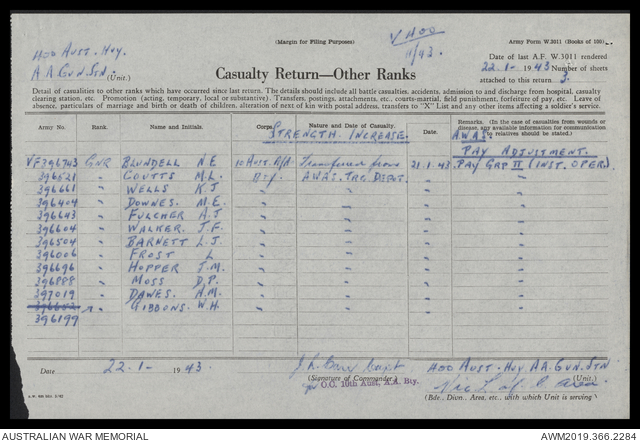 (Margin for Filing Purposes)
Army Form W.3011 (Books of 100)
VAOO
11/43.
400 AUST. HVY.
A A GUN. STN. (Unit.)
Date of last A.F. W.3011 rendered
22-1- 1943 Number of sheets
attached to this return 3.
Casualty Return—Other Ranks
Detail of casualties to other ranks which have occurred since last return. The details should include all battle casualties, accidents, admission to and discharge from hospital, casualty
clearing station, etc. Promotion (acting, temporary, local or substantive). Transfers, postings, attachments, etc., courts-martial, field punishment, forfeiture of pay, etc. Leave of
absence, particulars of marriage and birth or death of children, alteration of next of kin with postal address, transfers to "X" List and any other items affecting a soldier's service.
Army No. Rank. Name and Initials. Corps. Nature and Date of Casualty. Date. Remarks. (In the case of casualties from wounds or disease, any available information for communication to relatives should be given)
STRENGTH INCREASE. A.W.A.S.
PAY ADJUSTMENT.
VF396743 GNR BLUNDELL N.E. 10 HVY. A/A Transferred from 21.1.43 PAY GRP II (INST. OPER).
396521 " COUTTS M.L. Bty. A.W.A.S. TRG. DEPOT. " "
396661 " WELLS K.J " " "
396404 " DOWNES. M.E. " " "
396643 " FULCHER A.J " " "
396604 " WALKER. J.F. " " "
396504 " BARNETT L.J. " " "
396006 " FROST L " " "
396696 " HOPPER J.M. " " "
396888 " MOSS D.P. " " "
397019 " DAWES. A.M. " " "
396652 " GIBBONS. W.H. " " "
396199
Date 22-1- 1943.
(Signature of Commander)
for O.C. 10th Aust. A.A. Bty.
400 AUST. HVY AA. GUN. STN
(Unit.)
Vic L of C Area
(Bde., Divn., Area, etc., with which Unit is serving)
AUSTRALIAN WAR MEMORIAL
AWM2019.366.2284